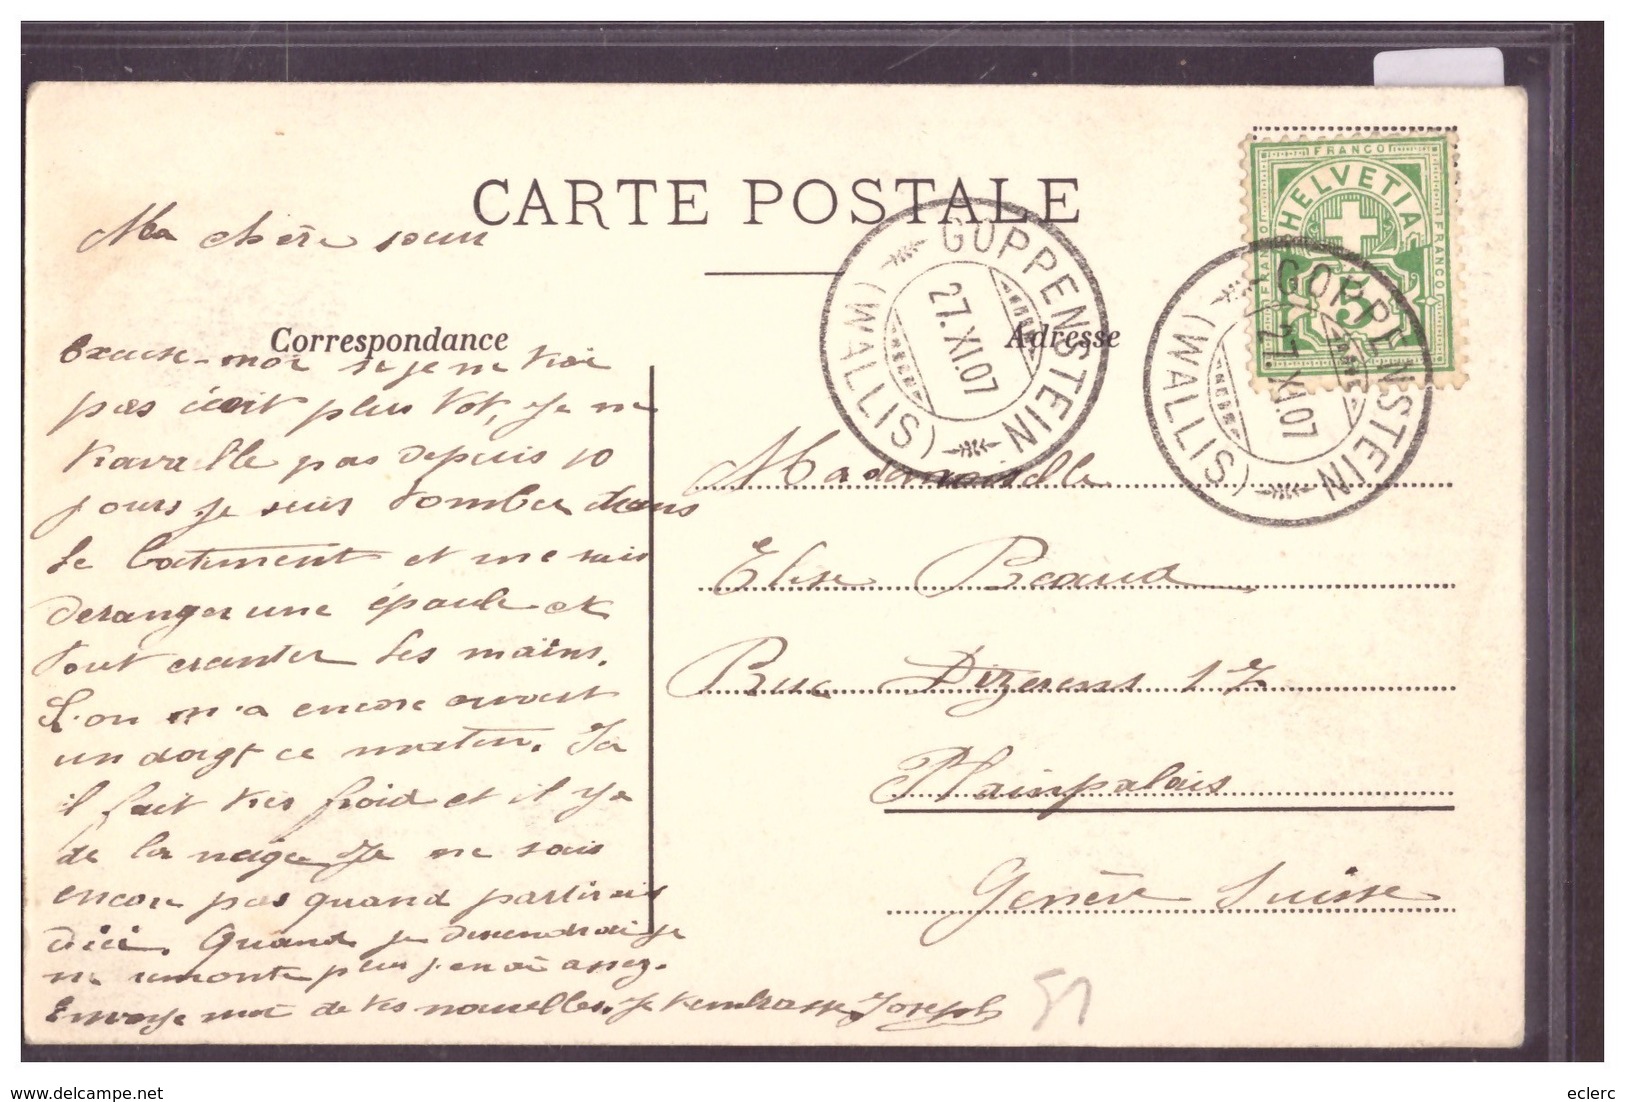 CARTE POSTALE
FRANCO
HELVETIA
FRANCO
FRANCO
5
GOPPENSTEIN
27.XI.07
(WALLIS)
GOPPENSTEIN
27.XI.07
(WALLIS)
Correspondance
Adresse
Ma chère sœur
Excuse-moi si je ne t'ai
pas écrit plus tot, je ne
travaille pas depuis 10
jours je suis tomber dans
le batiment et me suis
deranger une épaule et
tout les mains.
L'on m'a encore ouvert
un doigt ce matin. Ja
il fait tres froid et il y a
de la neige Je ne sais
encore pas quand partirais
d'ici. Quand je descendrai je
ne remonte plus j'en ai assez.
Envoye moi de tes nouvelles. Je t'embrasse Joseph
Mademoiselle
Elise Beaud
Rue Dizerens 17
Plainpalais
Genève Suisse
51
www.delcampe.net
eclerc